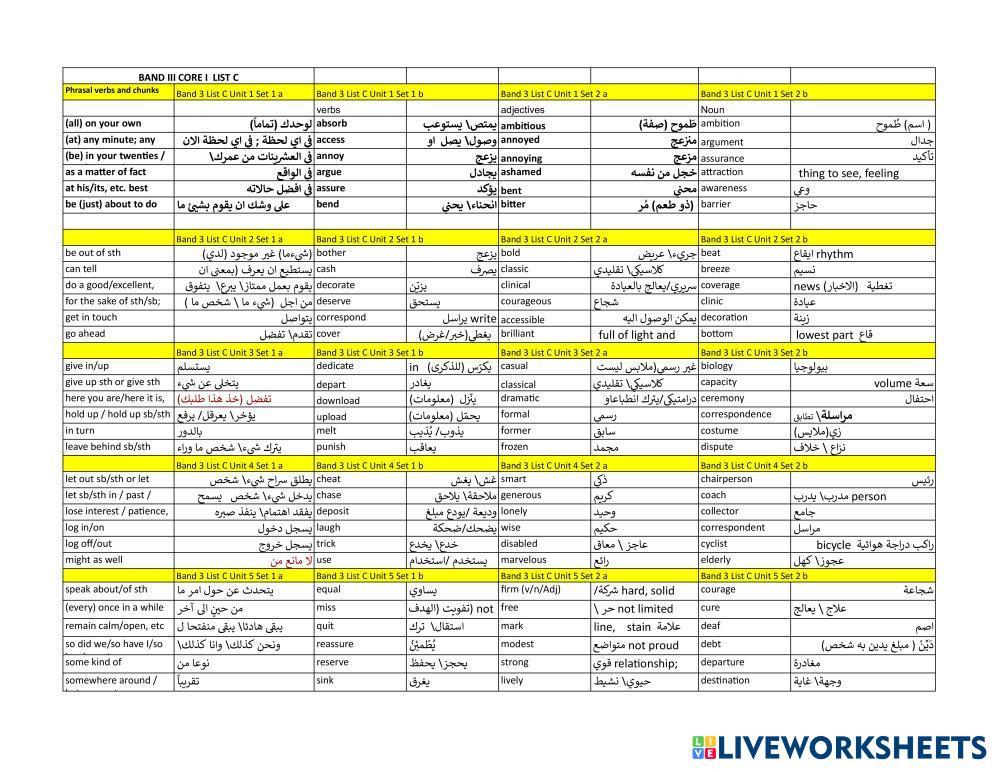 BAND III CORE I LIST C
Phrasal verbs and chunks Band 3 List C Unit 1 Set 1 a Band 3 List C Unit 1 Set 1 b Band 3 List C Unit 1 Set 2 a Band 3 List C Unit 1 Set 2 b
verbs adjectives Noun
(all) on your own لوحدك (تماماً) absorb يمتص\ يستوعب ambitious طَموح (صفة) ambition ( اسم) طُموح
(at) any minute; any في اي لحظة ; في اي لحظة الان access وصول\ يصل او annoyed منزعج argument جدال
(be) in your twenties / في العشرينات من عمرك\ annoy يزعج annoying مزعج assurance تأكيد
as a matter of fact في الواقع argue يجادل ashamed خجل من نفسه attraction thing to see, feeling
at his/its, etc. best في افضل حالاته assure يؤكد bent محني awareness وعي
be (just) about to do على وشك ان يقوم بشيئ ما bend انحناء\ يحني bitter (ذو طعم) مُر barrier حاجز
Band 3 List C Unit 2 Set 1 a Band 3 List C Unit 2 Set 1 b Band 3 List C Unit 2 Set 2 a Band 3 List C Unit 2 Set 2 b
be out of sth (شيءما) غير موجود (لدي) bother يزعج bold جريء\ عريض beat ايقاع rhythm
can tell يستطيع ان يعرف (بمعنى ان cash يصرف classic كلاسيكي\ تقليدي breeze نسيم
do a good/excellent, يقوم بعمل ممتاز\ يبرع\ يتفوق decorate يزيّن clinical سريري/يعالج بالعيادة coverage تغطية (الاخبار) news
for the sake of sth/sb; من اجل (شيء ما \ شخص ما ) deserve يستحق courageous شجاع clinic عيادة
get in touch يتواصل correspond يراسل write accessible يمكن الوصول اليه decoration زينة
go ahead تقدم\ تفضل cover يغطي(خبر/غرض) brilliant full of light and bottom lowest part قاع
Band 3 List C Unit 3 Set 1 a Band 3 List C Unit 3 Set 1 b Band 3 List C Unit 3 Set 2 a Band 3 List C Unit 3 Set 2 b
give in/up يستسلم dedicate يكرّس (للذكرى) in casual غير رسمي(ملابس ليست biology بيولوجيا
give up sth or give sth يتخلى عن شيء depart يغادر classical كلاسيكي\ تقليدي capacity سعة volume
here you are/here it is, تفضل (خذ هذا طلبك) download ينَّزل (معلومات) dramatic درامتيكي/يترك انطباعاو ceremony احتفال
hold up / hold up sb/sth يؤخر\ يعرقل/ يرفع upload يحمّل (معلومات) formal رسمي correspondence مراسلة\ تطابق
in turn بالدور melt يذوب/ يُذيب former سابق costume زي(ملابس)
leave behind sb/sth يترك شيء\ شخص ما وراء punish يعاقب frozen مجمد dispute نزاع \ خلاف
Band 3 List C Unit 4 Set 1 a Band 3 List C Unit 4 Set 1 b Band 3 List C Unit 4 Set 2 a Band 3 List C Unit 4 Set 2 b
let out sb/sth or let يطلق سراح شيء\ شخص cheat غش\ يغش smart ذكي chairperson رئيس
let sb/sth in / past / يدخل شيء\ شخص يسمح chase ملاحقة\ يلاحق generous كريم coach مدرب\ يدرب person
lose interest / patience, يفقد اهتمام\ ينفذ صبره deposit وديعة /يودع مبلغ lonely وحيد collector جامع
log in/on يسجل دخول laugh يضحك/ضحكة wise حكيم correspondent مراسل
log off/out يسجل خروج trick خدع\ يخدع disabled عاجز \ معاق cyclist راكب دراجة هوائية bicycle
might as well لا مانع من use يستخدم /استخدام marvelous رائع elderly عجوز\ كهل
Band 3 List C Unit 5 Set 1 a Band 3 List C Unit 5 Set 1 b Band 3 List C Unit 5 Set 2 a Band 3 List C Unit 5 Set 2 b
speak about/of sth يتحدث عن حول امر ما equal يساوي firm (v/n/Adj) شركة/ hard, solid courage شجاعة
(every) once in a while من حينٍ الى آخر miss تفويت (الهدف) not free حر \ not limited cure علاج \ يعالج
remain calm/open, etc يبقى هادئا\ يبقى منفتحا ل quit استقال\ ترك mark line, stain علامة deaf اصم
so did we/so have I/so ونحن كذلك\ وانا كذلك\ reassure يُطَمْئِنُ modest متواضع not proud debt دَيْنٌ ( مبلغ يدين به شخص)
some kind of نوعا من reserve يحجز\ يحفظ strong قوي relationship; departure مغادرة
somewhere around / تقريباً sink يغرق lively حيوي\ نشيط destination وجهة\ غاية
LIVE LIVEWORKSHEETS